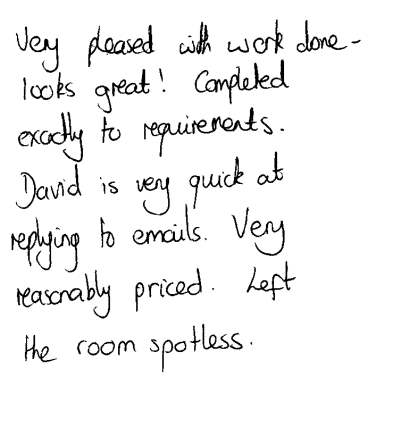 Very pleased with work done -
looks great! Completed
exactly to requirements.
David is very quick at
replying to emails. Very
reasonably priced. Left
the room spotless.